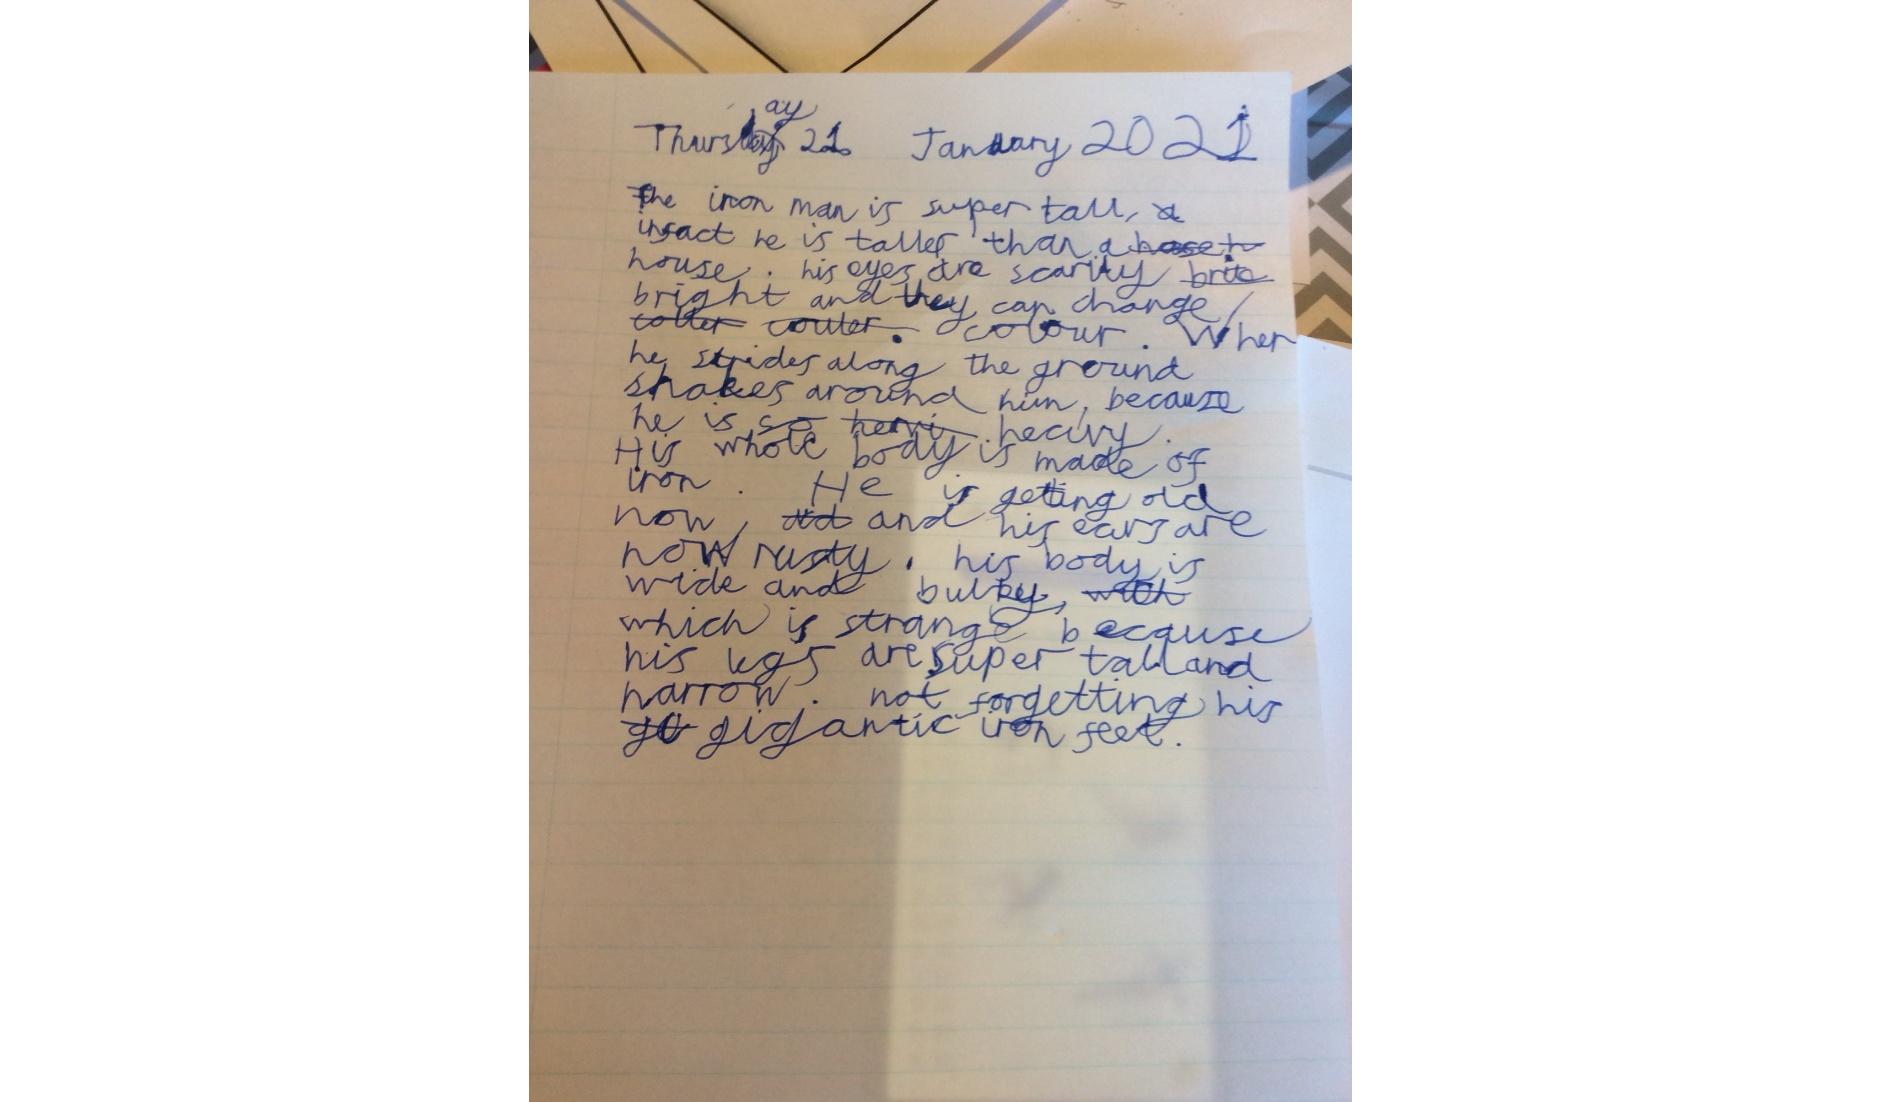 Thursday 21 January 2021
The iron man is super tall, a
infact he is taller than a
house. his eyes are scarity brite
bright and they can change
coller couler. colour. When
he strides along the ground
shakes around him, because
he is so hevi heavy.
His whole body is made of
iron. He is getting old
now, and his ears are
now rusty. his body is
wide and bulky, with
which is strange because
his legs are super tall and
narrow. not forgetting his
gigantic iron feet.